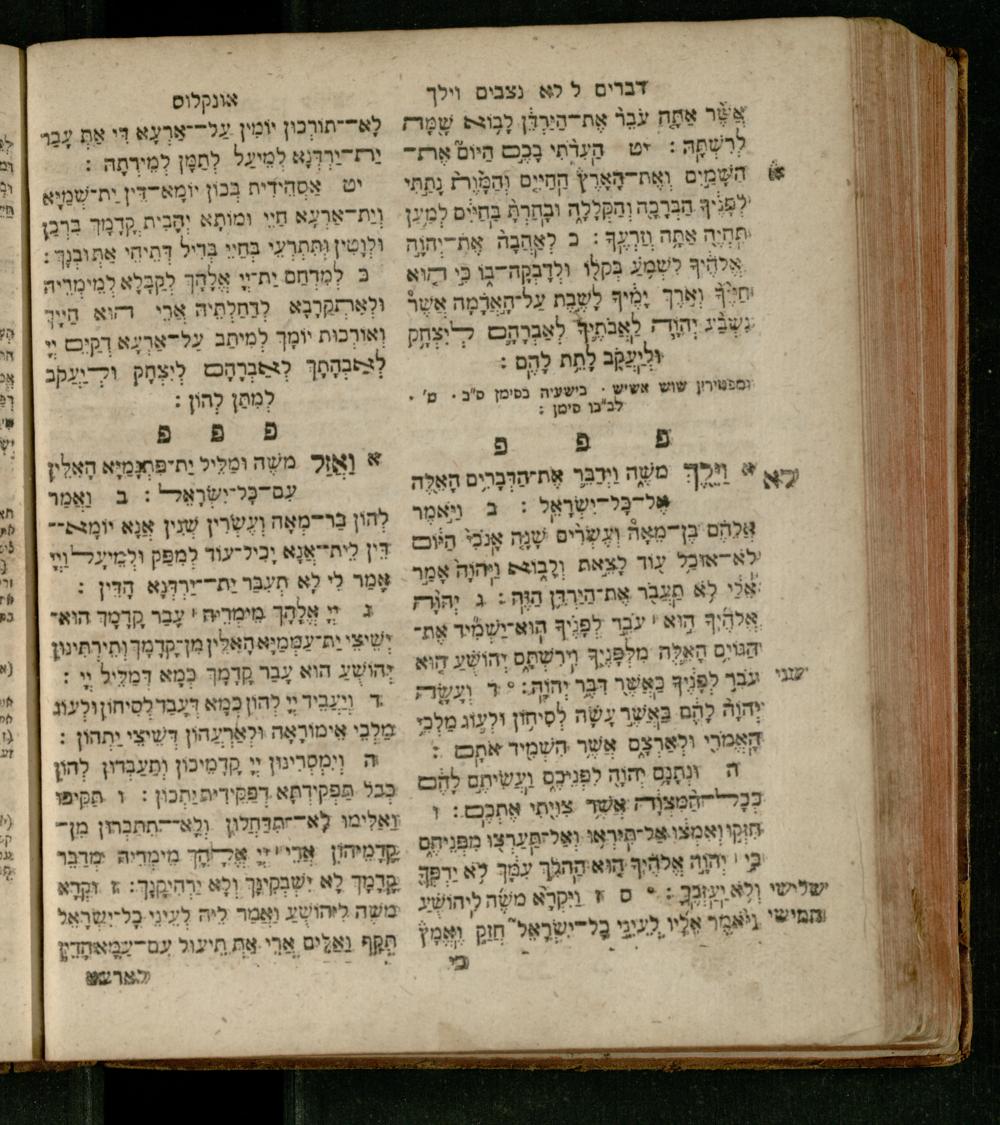 דברים ל לא נצבים וילך
אֲשֶׁר אַתָּה עֹבֵר אֶת־הַיַּרְדֵּן לָבוֹא שָׁמָּה
לְרִשְׁתָּהּ : יט הַעִדֹתִי בָכֶם הַיּוֹם אֶת־
הַשָּׁמַיִם וְאֶת־הָאָרֶץ הַחַיִּים וְהַמָּוֶת נָתַתִּי
לְפָנֶיךָ הַבְּרָכָה וְהַקְּלָלָה וּבָחַרְתָּ בַּחַיִּים לְמַעַן
תִּחְיֶה אַתָּה וְזַרְעֶךָ : כ לְאַהֲבָה אֶת־יְהוָֹה
אֱלֹהֶיךָ לִשְׁמֹעַ בְּקֹלוֹ וּלְדָבְקָה־בוֹ כִּי הוּא
חַיֶּיךָ וְאֹרֶךְ יָמֶיךָ לָשֶׁבֶת עַל־הָאֲדָמָה אֲשֶׁר
נִשְׁבַּע יְהוָֹה לַאֲבֹתֶיךָ לְאַבְרָהָם לְיִצְחָק
וּלְיַעֲקֹב לָתֵת לָהֶם :
ומפטירין שוש אשיש · בישעיה בסימן ס"ב · ט' ·
לב"בו סימן :
פ פ פ
לא
א וַיֵּלֶךְ מֹשֶׁה וַיְדַבֵּר אֶת־הַדְּבָרִים הָאֵלֶּה
אֶל־כָּל־יִשְׂרָאֵל : ב וַיֹּאמֶר
אֲלֵהֶם בֶּן־מֵאָה וְעֶשְׂרִים שָׁנָה אָנֹכִי הַיּוֹם
לֹא־אוּכַל עוֹד לָצֵאת וְלָבוֹא וַיהוָֹה אָמַר
אֵלַי לֹא תַעֲבֹר אֶת־הַיַּרְדֵּן הַזֶּה : ג יְהוָֹה
אֱלֹהֶיךָ הוּא ׀ עֹבֵר לְפָנֶיךָ הוּא־יַשְׁמִיד אֶת־
הַגּוֹיִם הָאֵלֶּה מִלְּפָנֶיךָ וִירִשְׁתָּם יְהוֹשֻׁעַ הוּא
שני
עֹבֵר לְפָנֶיךָ כַּאֲשֶׁר דִּבֶּר יְהוָֹה : ° ד וְעָשָׂה
יְהוָֹה לָהֶם כַּאֲשֶׁר עָשָׂה לְסִיחוֹן וּלְעוֹג מַלְכֵי
הָאֱמֹרִי וּלְאַרְצָם אֲשֶׁר הִשְׁמִיד אֹתָם :
ה וּנְתָנָם יְהוָֹה לִפְנֵיכֶם וַעֲשִׂיתֶם לָהֶם
כְּכָל־הַמִּצְוָה אֲשֶׁר צִוִּיתִי אֶתְכֶם : ו
חִזְקוּ וְאִמְצוּ אַל־תִּירְאוּ וְאַל־תַּעַרְצוּ מִפְּנֵיהֶם
כִּי ׀ יְהוָֹה אֱלֹהֶיךָ הוּא הַהֹלֵךְ עִמָּךְ לֹא יַרְפְּךָ
שלישי
וְלֹא יַעַזְבֶךָּ : ° ס ז וַיִּקְרָא מֹשֶׁה לִיהוֹשֻׁעַ
חמישי
וַיֹּאמֶר אֵלָיו לְעֵינֵי כָל־יִשְׂרָאֵל חֲזַק וֶאֱמָץ
כי
אונקלוס
לָא־תוֹרְכוּן יוֹמִין עַל־אַרְעָא דִּי אַתְּ עָבַר
יַת־יַרְדְּנָא לְמֵיעַל לְתַמָּן לְמֵירְתָהּ :
יט אַסְהִידִית בְּכוֹן יוֹמָא־דֵין יַת־שְׁמַיָּא
וְיַת־אַרְעָא חַיֵּי וּמוֹתָא יְהָבִית קֳדָמָךְ בִּרְכָן
וּלְוָטִין וְתִתְרְעֵי בְּחַיֵּי בְּדִיל דְּתֵיחֵי אַתְּ וּבְנָךְ :
כ לְמִרְחַם יַת־יְיָ אֱלָהָךְ לְקַבָּלָא לְמֵימְרֵיהּ
וּלְאִתְקְרָבָא לְדַחַלְתֵּיהּ אֲרֵי הוּא חַיָּיךְ
וְאוֹרְכוּת יוֹמָךְ לְמִיתַב עַל־אַרְעָא דְּקַיִּים יְיָ
לַאֲבְהָתָךְ לְאַבְרָהָם לְיִצְחָק וּלְיַעֲקֹב
לְמִתַּן לְהוֹן :
פ פ פ
א וַאֲזַל מֹשֶׁה וּמַלֵּיל יַת־פִּתְגָמַיָּא הָאִלֵּין
עִם־כָּל־יִשְׂרָאֵל : ב וַאֲמַר
לְהוֹן בַּר־מְאָה וְעֶשְׂרִין שְׁנִין אֲנָא יוֹמָא־
דֵּין לֵית־אֲנָא יָכִיל־עוֹד לְמִפַּק וּלְמֵיעַל וַיְיָ
אֲמַר לִי לָא תַעְבַּר יַת־יַרְדְּנָא הָדֵין :
ג יְיָ אֱלָהָךְ מֵימְרֵיהּ ׀ עָבַר קֳדָמָךְ הוּא־
יְשֵׁיצֵי יַת־עַמְמַיָּא הָאִלֵּין מִן־קֳדָמָךְ וְתֵירְתִנּוּן
יְהוֹשֻׁעַ הוּא עָבַר קֳדָמָךְ כְּמָא דְּמַלֵּיל יְיָ :
ד וְיַעֲבֵיד יְיָ לְהוֹן כְּמָא דַּעֲבַד לְסִיחוֹן וּלְעוֹג
מַלְכֵי אֱימוֹרָאָה וּלְאַרְעֲהוֹן דְּשֵׁיצֵי יַתְהוֹן :
ה וְיִמְסְרִינּוּן יְיָ קֳדָמֵיכוֹן וְתַעְבְּדוּן לְהוֹן
כְּכָל תַּפְקֵידְתָּא דְּפַקֵּידִית יַתְכוֹן : ו תַּקִּיפוּ
וְאַלִּימוּ לָא־תִדְחֲלוּן וְלָא־תִתַּבְרוּן מִן־
קֳדָמֵיהוֹן אֲרֵי ׀ יְיָ אֱלָהָךְ מֵימְרֵיהּ מְדַבַּר
קֳדָמָךְ לָא יִשְׁבְּקִינָּךְ וְלָא יְרַחֲקִינָּךְ : ז וּקְרָא
מֹשֶׁה לִיהוֹשֻׁעַ וַאֲמַר לֵיהּ לְעֵינֵי כָל־יִשְׂרָאֵל
תְּקַף וְאַלִּים אֲרֵי אַתְּ תֵיעוּל עִם־עַמָּא הָדֵין
לארעא